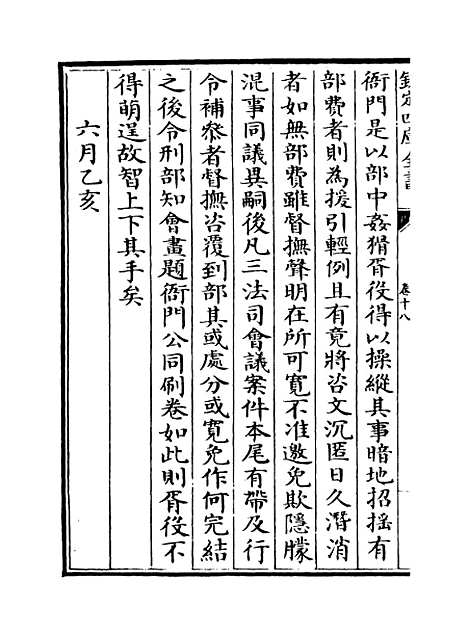 欽定四庫全書
卷十八
衙門是以部中姦猾胥役得以操縱其事暗地招揺有
部費者則為援引輕例且有竟將咨文沉匿日久潛消
者如無部費雖督撫聲明在所可寛不准邀免欺隱朦
混事同議異嗣後凡三法司會議案件本尾有帶及行
令補叅者督撫咨覆到部其或處分或寛免作何完結
之後令刑部知會畫題衙門公同刷卷如此則胥役不
得萌逞故智上下其手矣
六月乙亥